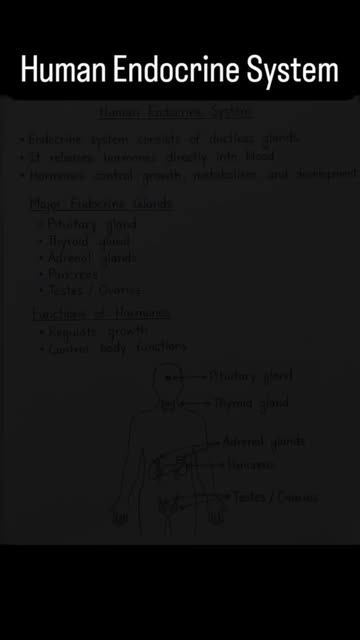 Human Endocrine System
Human Endocrine System
• Endocrine system consists of ductless glands
• It releases hormones directly into blood
• Hormones control growth, metabolism, and development
Major Endocrine Glands
• Pituitary gland
• Thyroid gland
• Adrenal glands
• Pancreas
• Testes / Ovaries
Functions of Hormones
• Regulate growth
• Control body functions
Pituitary gland
Thyroid gland
Adrenal glands
Pancreas
Testes / Ovaries